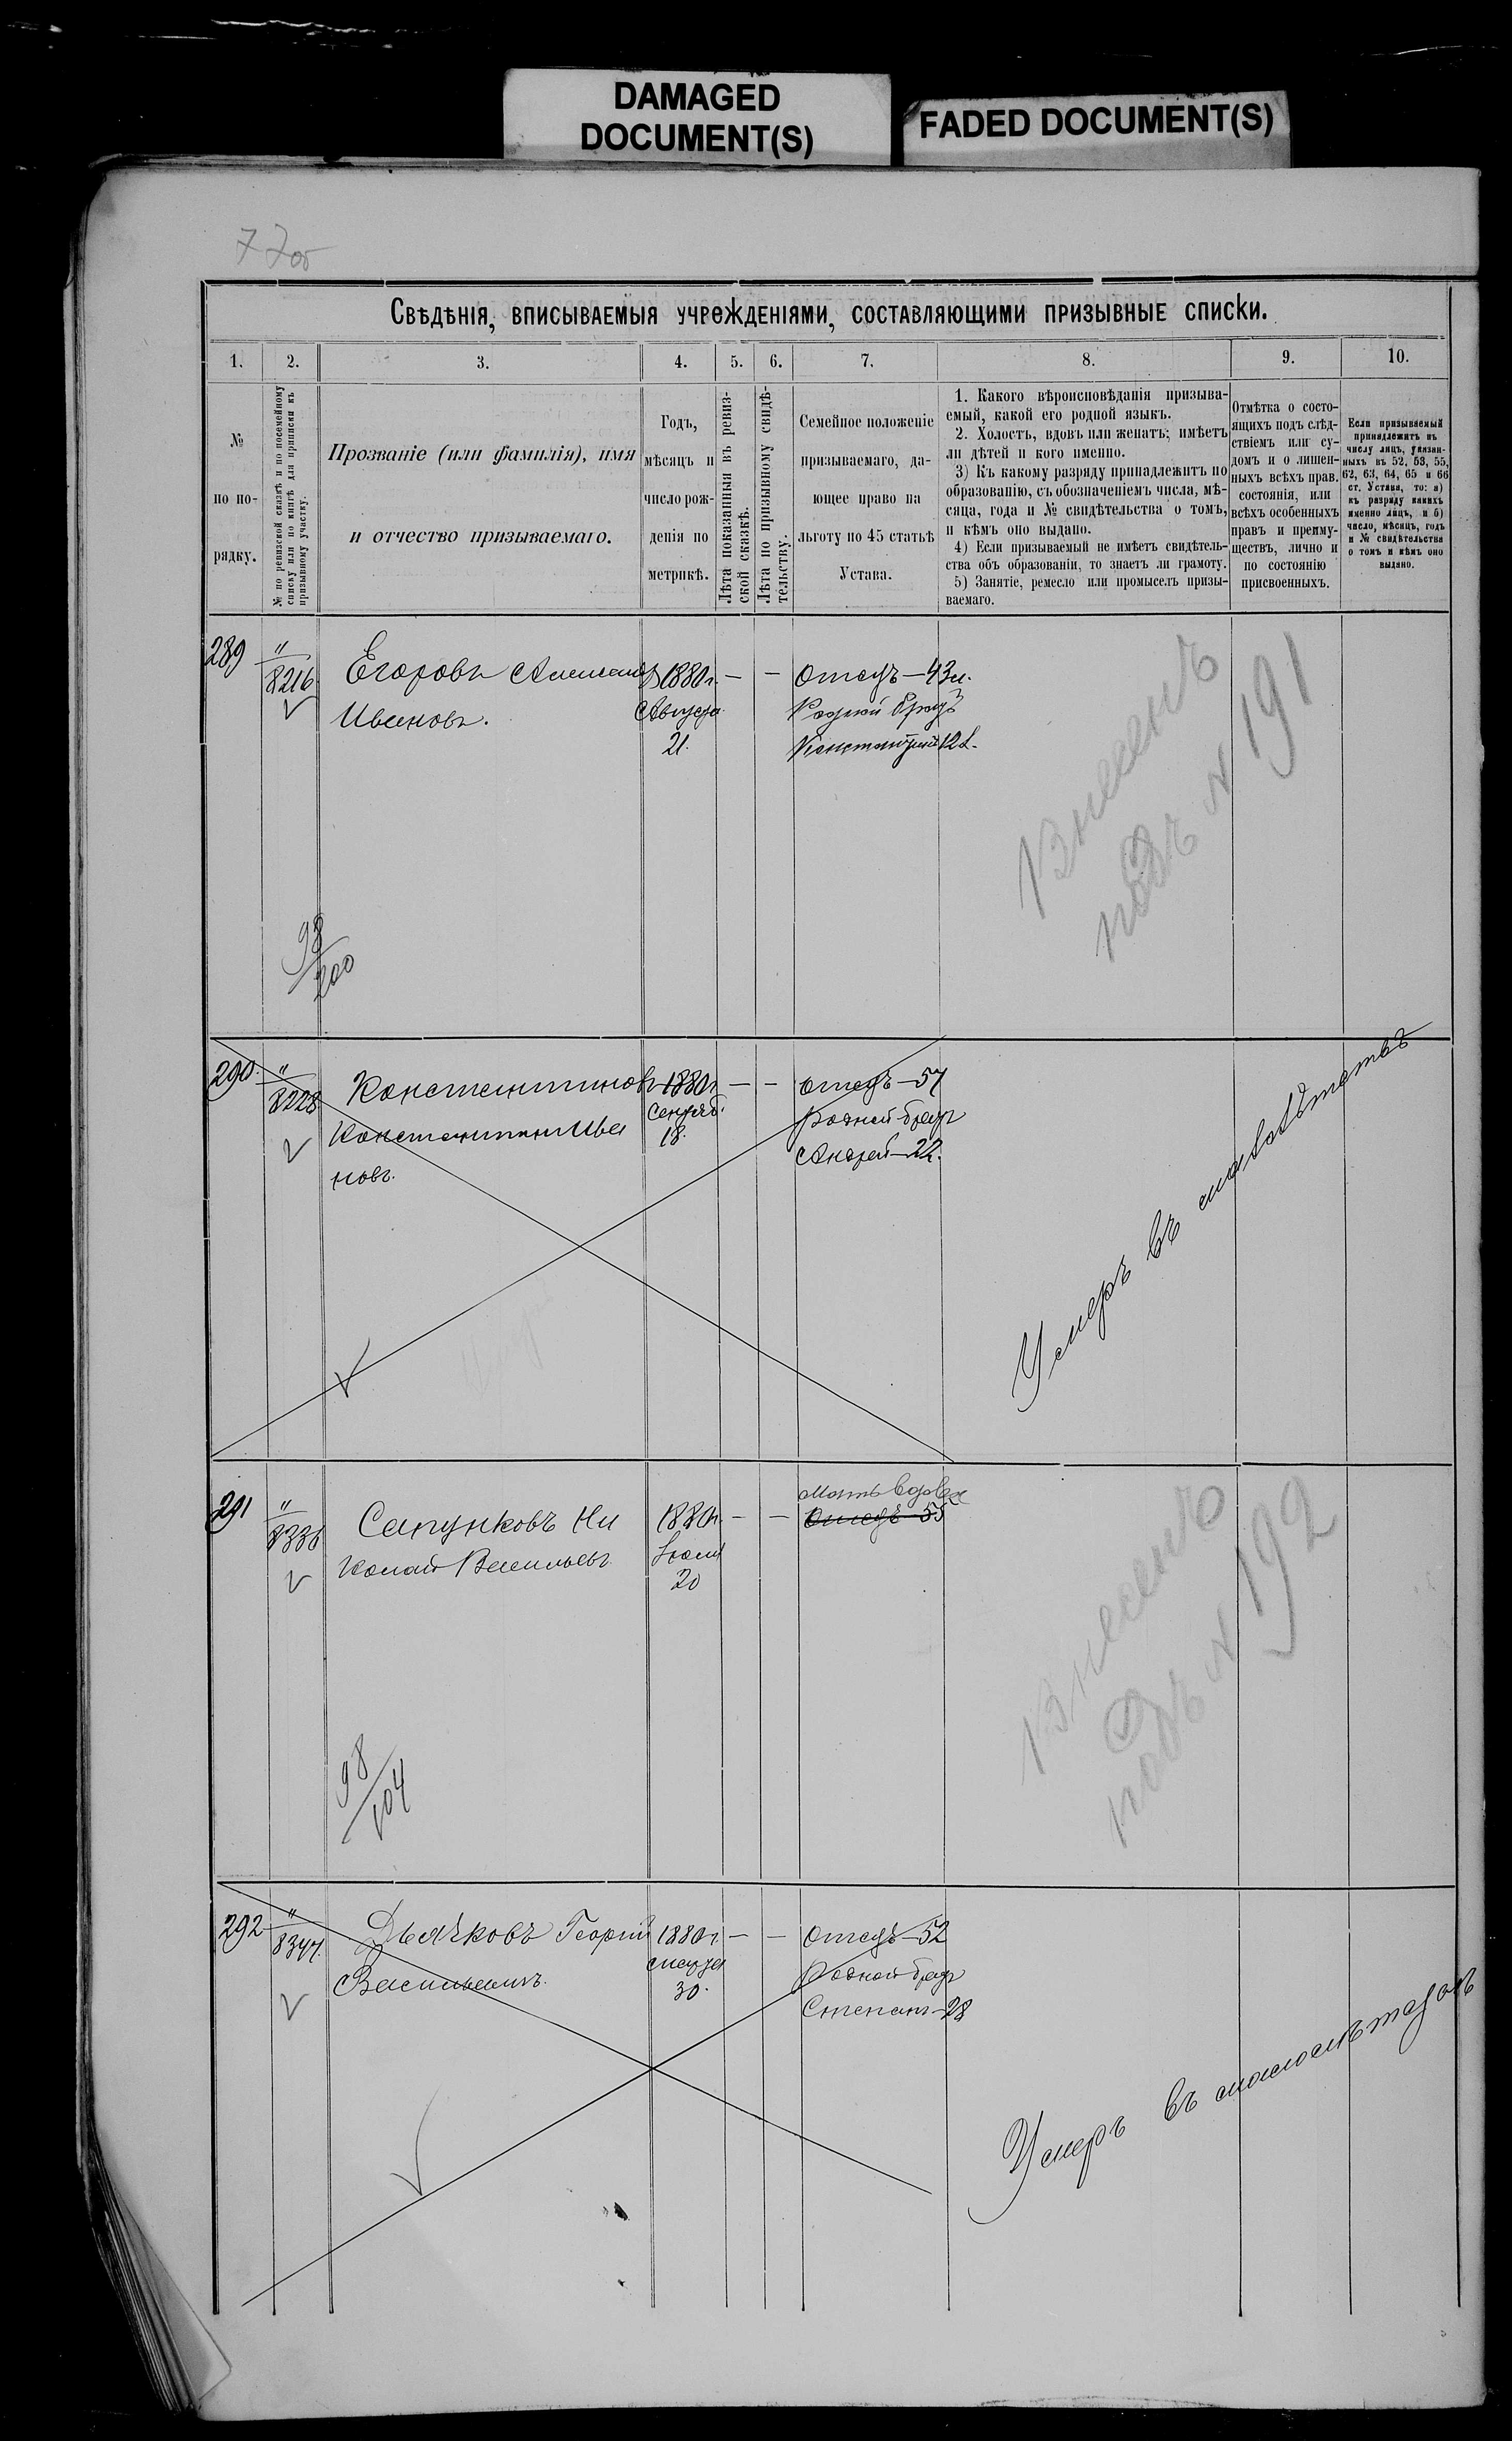 DAMAGED
DOCUMENT(S)
FADED DOCUMENT(S)
77об
Свѣдѣнія, вписываемыя учрежденіями, составляющими призывные списки.
1.
2.
3.
4.
5.
6.
7.
8.
9.
10.
№
по по-
рядку.
№ по ревизской сказкѣ и по посемейному
списку или по книгѣ для приписки къ
призывному участку.
Прозваніе (или фамилія), имя
и отчество призываемаго.
Годъ,
мѣсяцъ и
число рож-
денія по
метрикѣ.
Лѣта показанныя въ ревиз-
ской сказкѣ.
Лѣта по призывному свидѣ-
тельству.
Семейное положеніе
призываемаго, да-
ющее право на
льготу по 45 статьѣ
Устава.
1. Какого вѣроисповѣданія призыва-
емый, какой его родной языкъ.
2. Холостъ, вдовъ или женатъ; имѣетъ
ли дѣтей и кого именно.
3) Къ какому разряду принадлежитъ по
образованію, съ обозначеніемъ числа, мѣ-
сяца, года и № свидѣтельства о томъ,
и кѣмъ оно выдано.
4) Если призываемый не имѣетъ свидѣтель-
ства объ образованіи, то знаетъ ли грамоту.
5) Занятіе, ремесло или промыселъ призы-
ваемаго.
Отмѣтка о состо-
ящихъ подъ слѣд-
ствіемъ или су-
домъ и о лишен-
ныхъ всѣхъ прав.
состоянія, или
всѣхъ особенныхъ
правъ и преиму-
ществъ, лично и
по состоянію
присвоенныхъ.
Если призываемый
принадлежитъ къ
числу лицъ, указан-
ныхъ въ 52, 53, 55,
62, 63, 64, 65 и 66
ст. Устава, то: а)
къ разряду какихъ
именно лицъ, и б)
число, мѣсяцъ, годъ
и № свидѣтельства
о томъ и кѣмъ оно
выдано.
289
"
8216
Егоровъ
Ивановъ.
1880г.
Августа
21.
—
—
Отецъ — 43л.
Родной братъ
Константинъ 12 л.
Внесенъ
подъ № 191
98
200
290.
"
8228
Константиновъ
Константинъ Ива
новъ.
1880г.
Сентяб.
18.
—
—
Отецъ — 57
Родной братъ
Андрей — 22.
Умеръ въ малолѣтствѣ
291
"
8336
Сапунковъ Ни
колай Васильевъ
1880г.
Іюля
20
—
—
Мать вдова
Отецъ 55
Внесенъ
подъ № 192
98
104
292
"
8347.
Дьячковъ Георгій
Васильевичъ.
1880г.
Марта
30.
—
—
Отецъ — 52
Родной братъ
Степанъ — 28
Умеръ въ